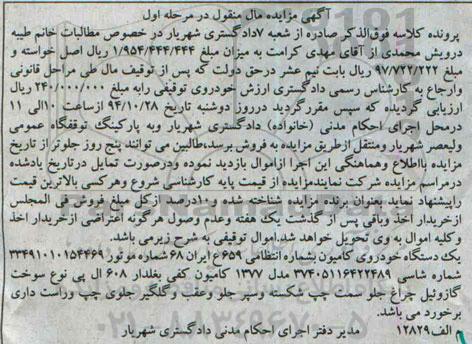 آگهی مزایده مال منقول در مرحله اول
پرونده کلاسه فوق‌الذکر صادره از شعبه ۷دادگستری شهریار در خصوص مطالبات خانم طیبه
درویش محمدی از آقای مهدی کرامت به میزان مبلغ ۱/۹۵۴/۴۴۴/۴۴۴ ریال اصل خواسته و
مبلغ ۹۷/۷۲۲/۲۲۲ ریال بابت نیم عشر درحق دولت که پس از توقیف مال طی مراحل قانونی
وارجاع به کارشناس رسمی دادگستری ارزش خودروی توقیفی رابه مبلغ ۲۴۰/۰۰۰/۰۰۰ ریال
ارزیابی گردیده که سپس مقررگردید درروز دوشنبه تاریخ ۹۴/۱۰/۲۸ ازساعت ۱۰الی ۱۱
درمحل اجرای احکام مدنی (خانواده) دادگستری شهریار وبه پارکینگ توقفگاه عمومی
ولیعصر شهریار ومنتقل ازطریق مزایده به فروش برسد،طالبین می توانند پنج روز جلوتر از تاریخ
مزایده بااطلاع وهماهنگی این اجرا ازاموال بازدید نموده و درصورت تمایل درتاریخ یادشده
درمراسم مزایده شرکت نمایندمزایده از قیمت پایه کارشناسی شروع وهرکسی بالاترین قیمت
راپیشنهاد نماید بعنوان برنده مزایده شناخته شده و۱۰درصد ازکل مبلغ فروش فی المجلس
ازخریدار اخذ وباقی پس از گذشت یک هفته وعدم وصول هرگونه اعتراضی ازخریدار اخذ
وکلیه اموال به وی تحویل خواهد شد.اموال توقیفی به شرح زیرمی باشد.
یک دستگاه خودروی کامیون بشماره انتظامی ۶۵۹ع ایران ۶۸ شماره موتور ۳۳۴۹۱۰۱۰۱۵۴۴۶۹
شماره شاسی ۳۷۴۰۵۱۱۶۴۲۲۴۸۹ مدل ۱۳۷۷ کامیون کفی بغلدار ۶۰۸ ال پی نوع سوخت
گازوئیل چراغ جلو سمت چپ شکسته وسپر جلو وعقب وگلگیر جلوی چپ وراست داری
برخورد می باشد.
م الف۱۲۸۲۹ مدیر دفتر اجرای احکام مدنی دادگستری شهریار